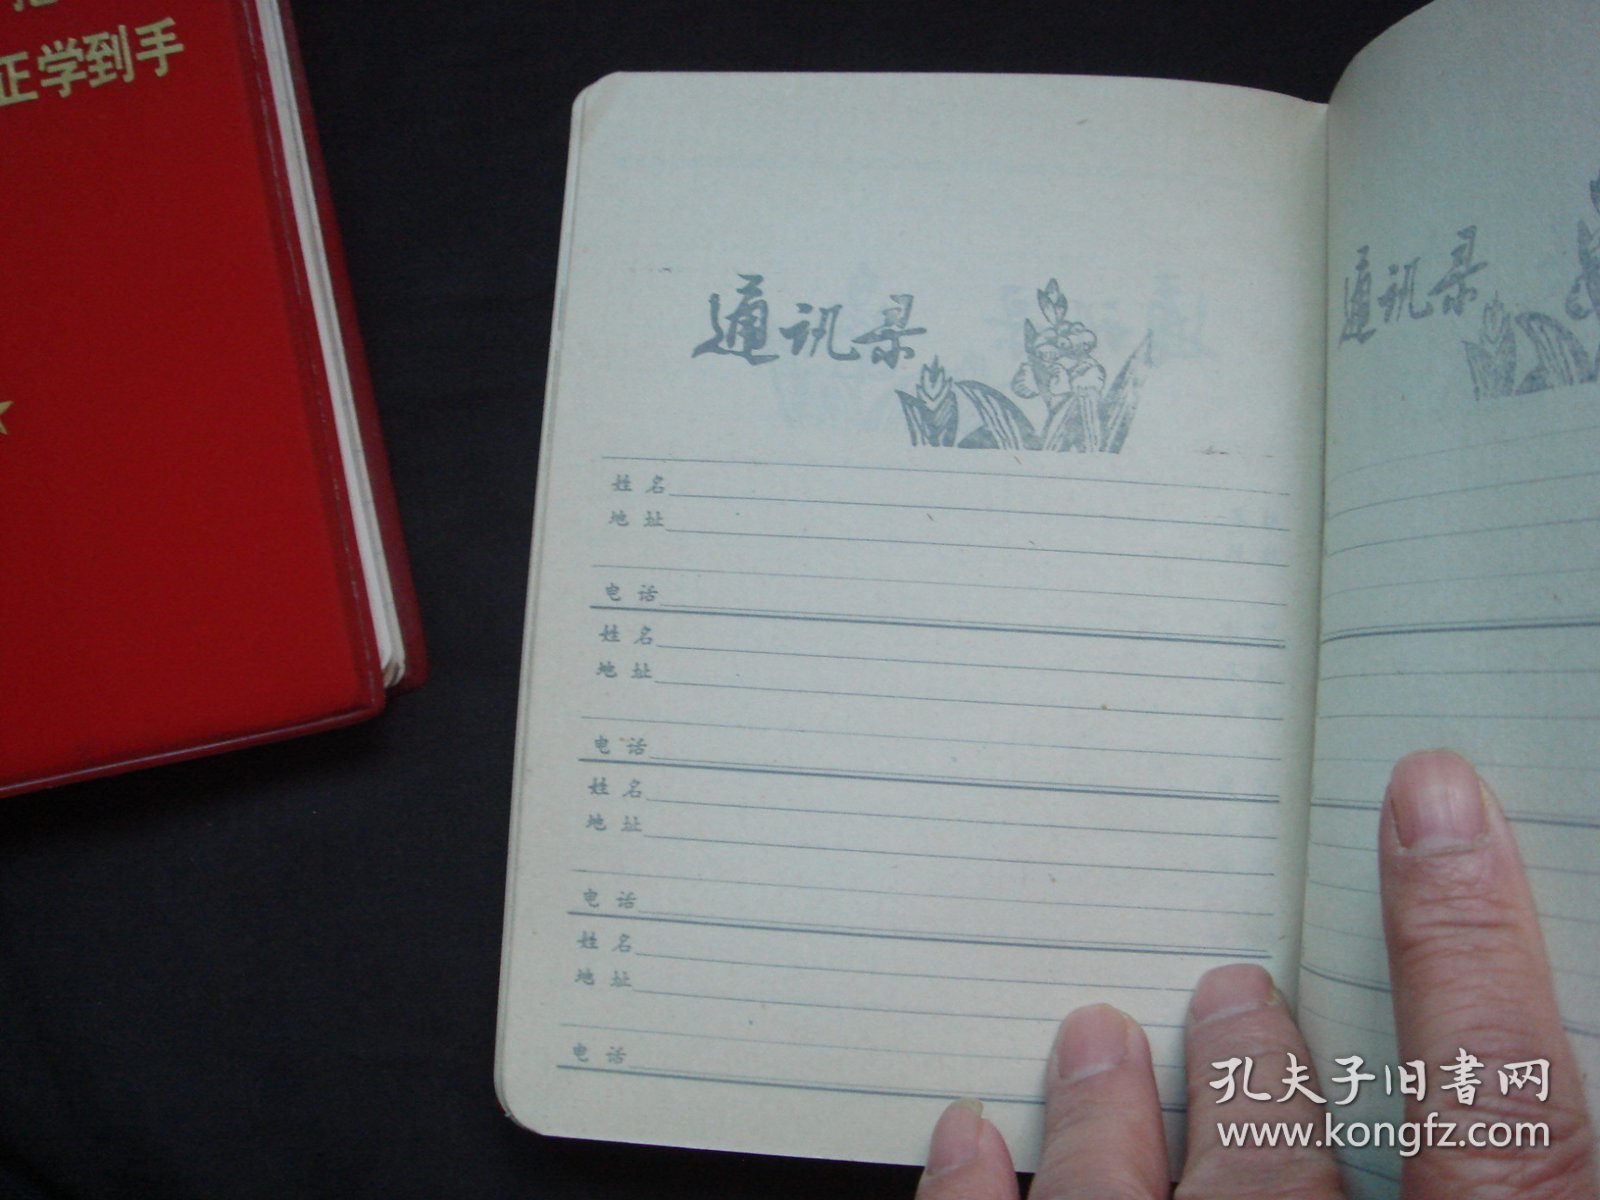 正学到手
通讯录
姓名
地址
电话
姓名
地址
电话
姓名
地址
电话
姓名
地址
电话
通讯录
孔夫子旧书网
www.kongfz.com